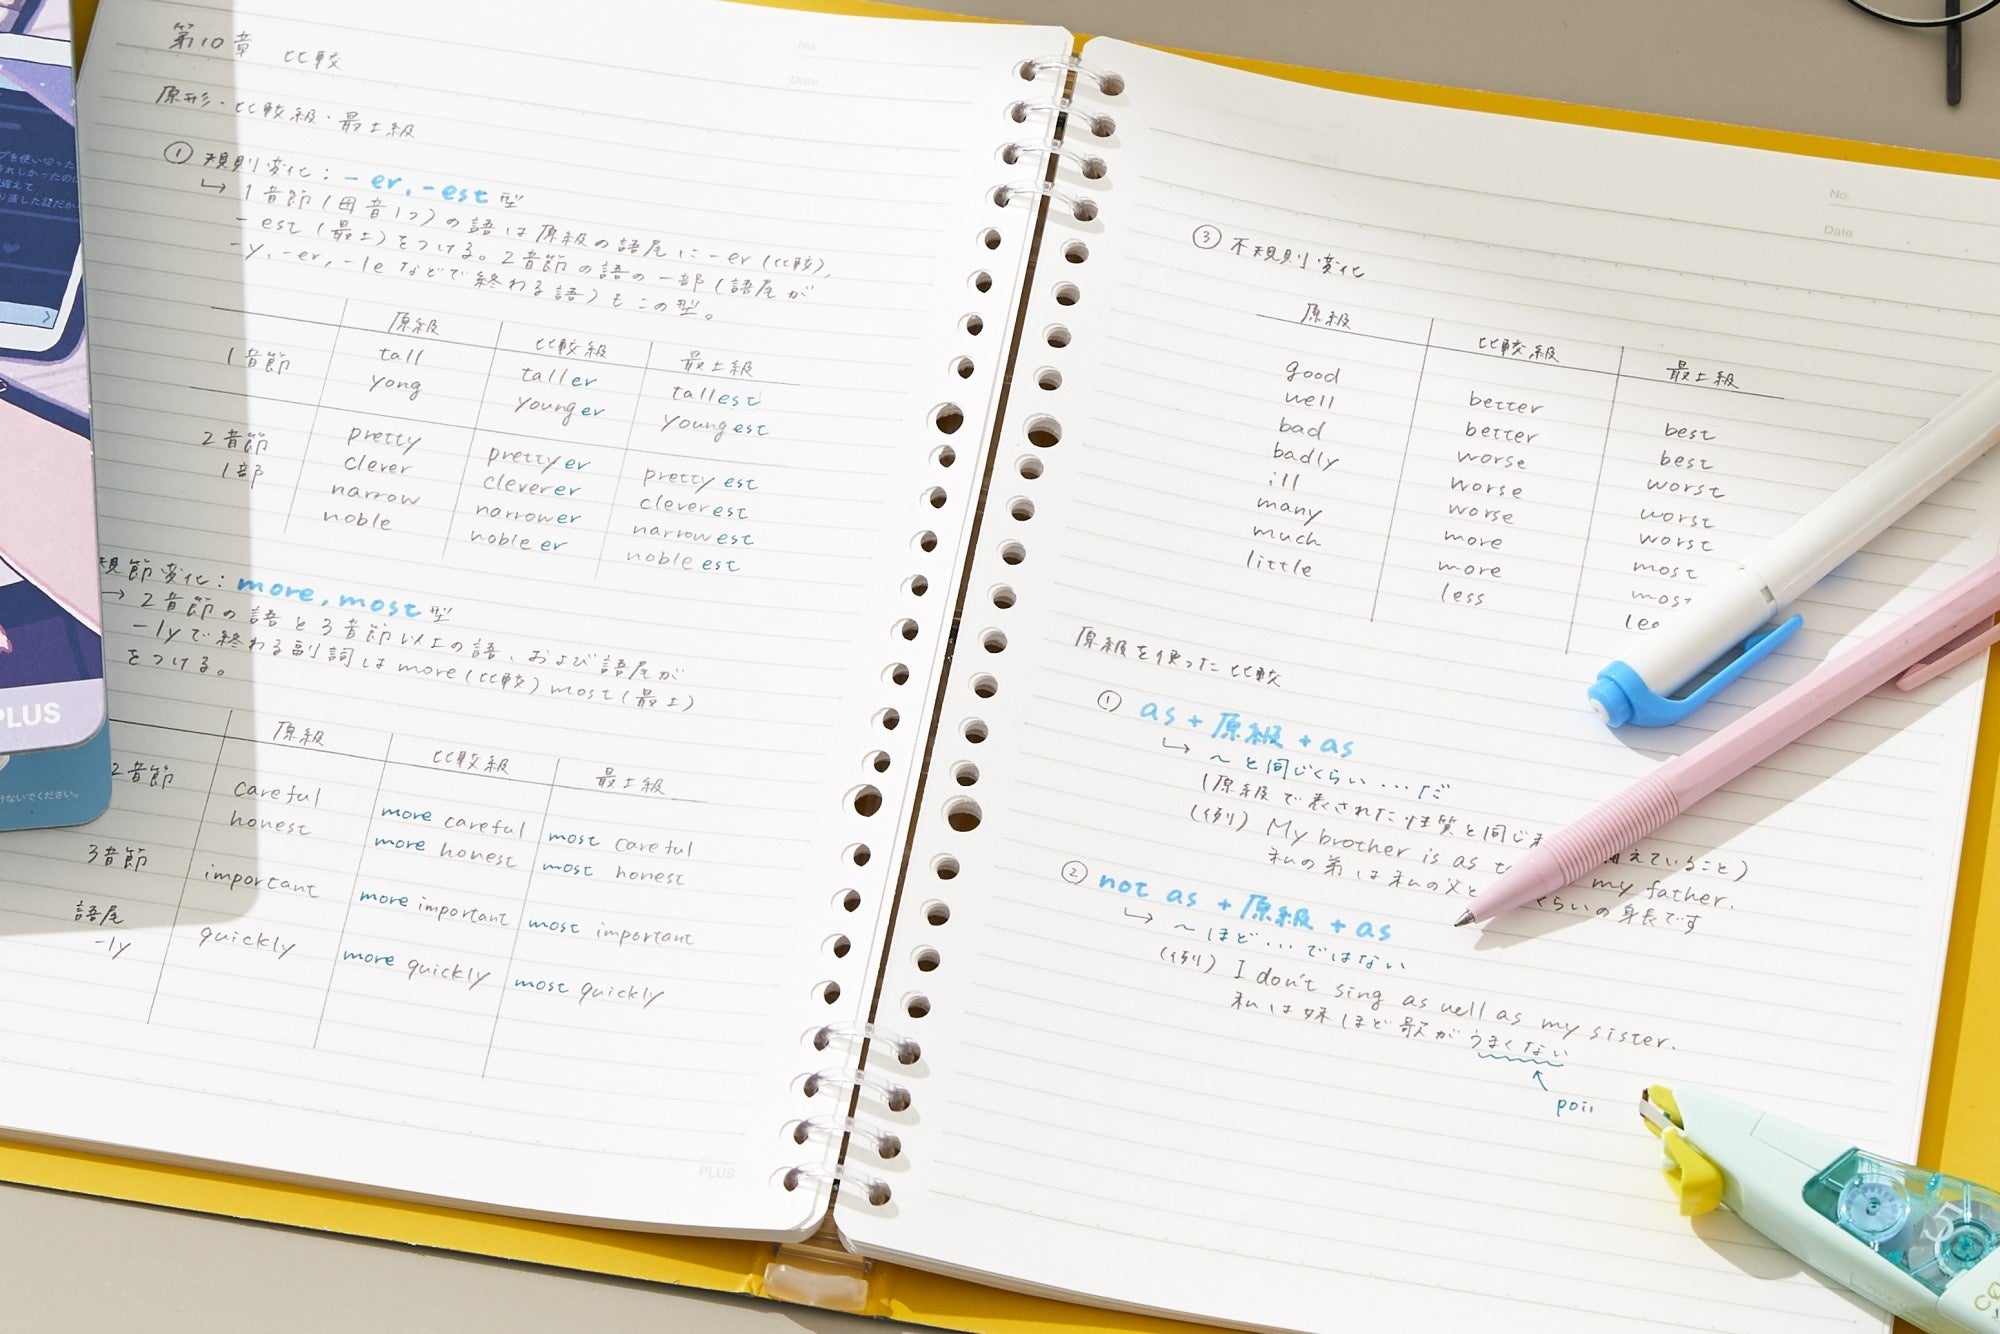 第10章 比較
原形・比較級・最上級
① 規則変化: -er, -est 型
↳ 1音節(母音1つ)の語は原級の語尾に-er(比較),
-est(最上)をつける。2音節の語の一部(語尾が
-y, -er, -leなどで終わる語)もこの型。
原級 比較級 最上級
1音節 tall taller tallest
yong younger youngest
2音節 pretty prettyer prettyest
1部 clever cleverer cleverest
narrow narrower narrowest
noble nobleer nobleest
規節変化: more, most 型
→ 2音節の語と3音節以上の語、および語尾が
-lyで終わる副詞はmore(比較)most(最上)
をつける。
原級 比較級 最上級
2音節 careful more careful most careful
honest more honest most honest
3音節 important more important most important
語尾 -ly quickly more quickly most quickly
PLUS
No.
Date
No.
Date
③ 不規則変化
原級 比較級 最上級
good better best
well better best
bad worse worst
badly worse worst
ill worse worst
many more most
much more most
little less
原級を使った比較
① as + 原級 + as
↳ 〜と同じくらい…だ
(原級で表された性質と同じ えていること)
(例) My brother is as my father.
私の弟は私の父と くらいの身長です
② not as + 原級 + as
↳ 〜ほど…ではない
(例) I don't sing as well as my sister.
私は妹ほど歌がうまくない
PLUS
プを使い切った
違えて
り直した話だか
けないでください。